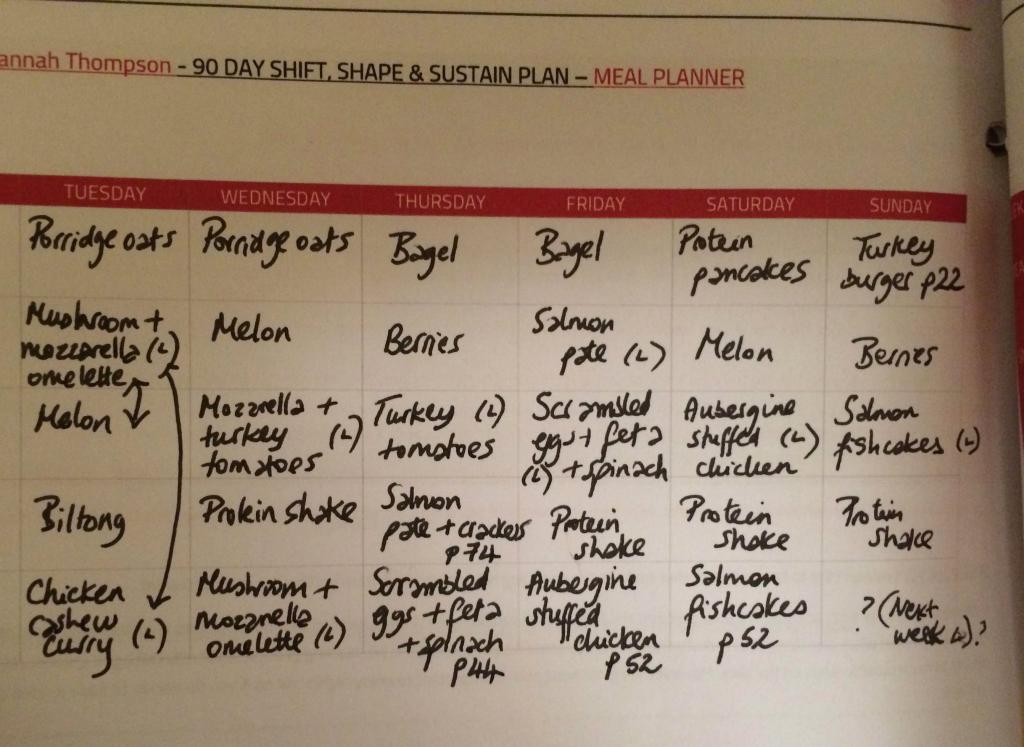 annah Thompson - 90 DAY SHIFT, SHAPE & SUSTAIN PLAN – MEAL PLANNER
TUESDAY WEDNESDAY THURSDAY FRIDAY SATURDAY SUNDAY
Porridge oats
Porridge oats
Bagel
Bagel
Protein
pancakes
Turkey
burger p22
Mushroom +
mozzarella (L)
omelette
Melon
Berries
Salmon
pate (L)
Melon
Berries
Melon
Mozzarella +
turkey (L)
tomatoes
Turkey (L)
tomatoes
Scrambled
eggs + feta
(L) + spinach
Aubergine
stuffed (L)
chicken
Salmon
fishcakes (L)
Biltong
Protein shake
Salmon
pate + crackers
p74
Protein
shake
Protein
shake
Protein
shake
Chicken
cashew
curry (L)
Mushroom +
mozzarella
omelette (L)
Scrambled
eggs + feta
+ spinach
p44
Aubergine
stuffed
chicken
p52
Salmon
fishcakes
p52
? (Next
week L).?